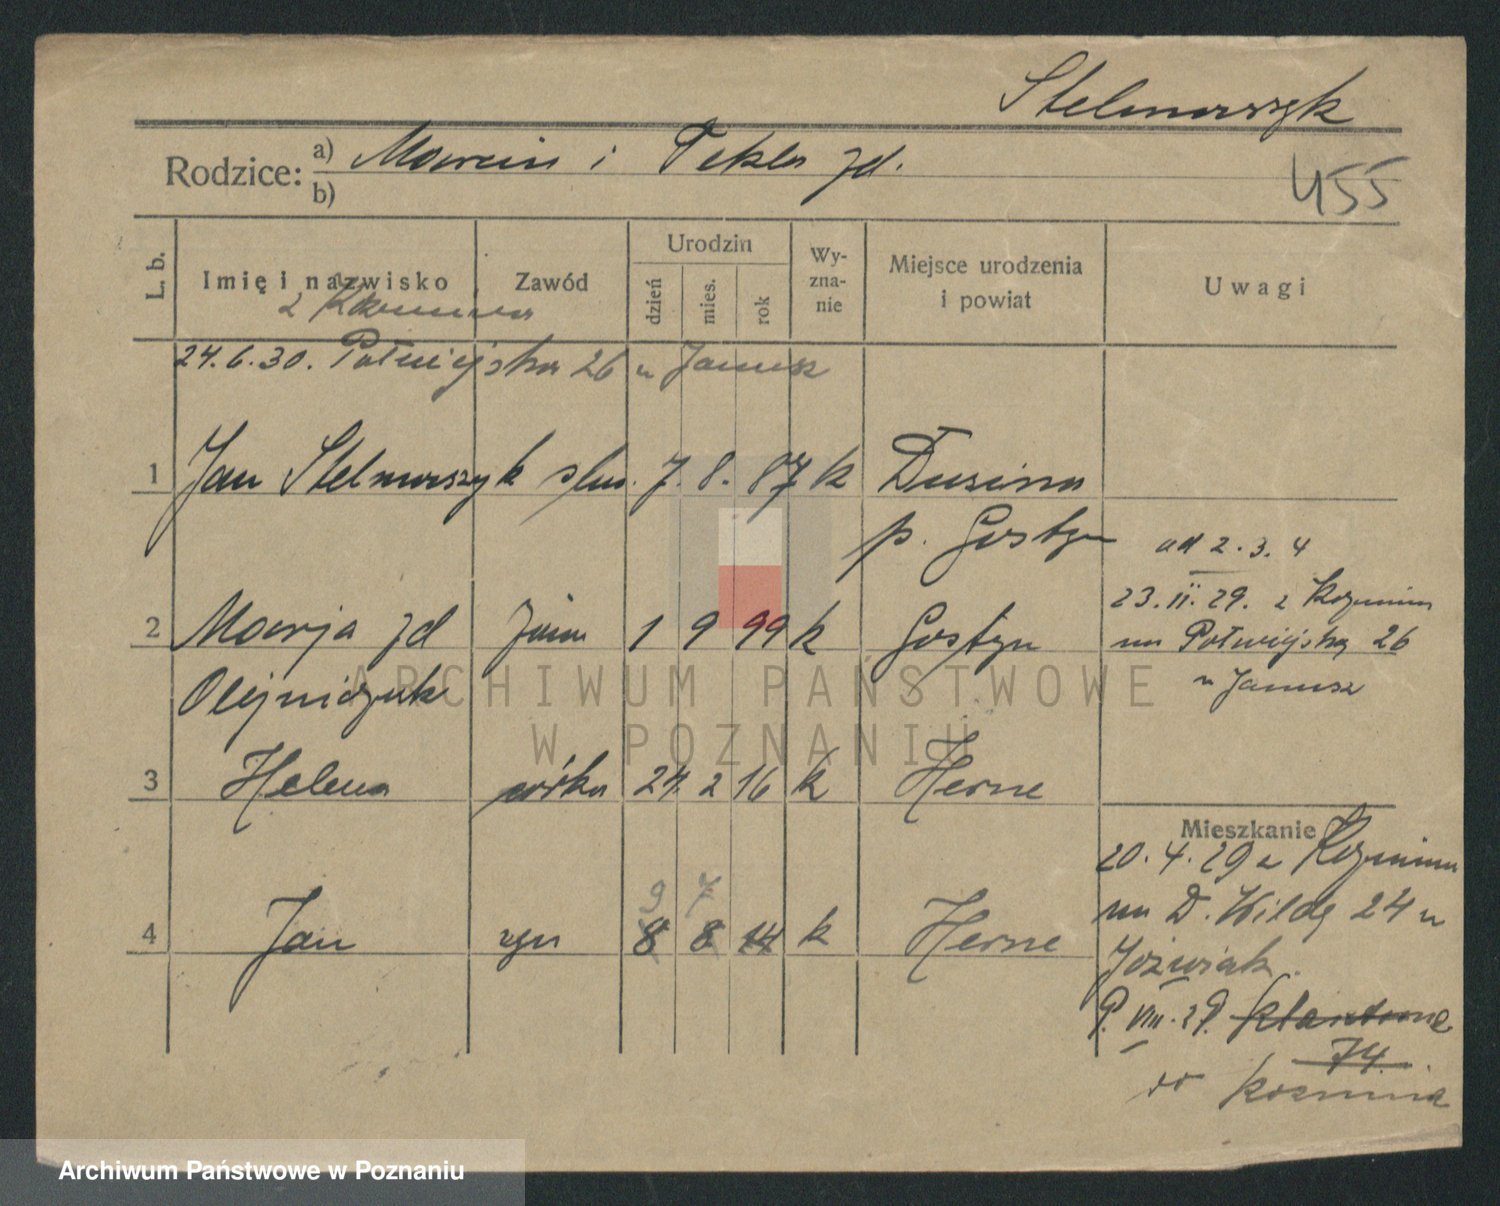 Stelmaszyk
Rodzice: a) Marcin i Tekla zd.
b)
455
L. b.
Imię i nazwisko
Zawód
Urodzin
dzień
mies.
rok
Wy-
zna-
nie
Miejsce urodzenia
i powiat
Uwagi
z Koźmina
24.6.30. Półwiejska 26 u Janusz
1 Jan Stelmaszyk 7. 8. 87 k Dusina
p. Gostyn
ad 2. 3. 4
23.II.29. z Kozmina
2 Marja zd żona 1 9 99 k Gostyn
na Półwiejską 26
Olejniczak
u Janusz
3 Helena córka 24. 2 16 k Herne
Mieszkanie
20. 4. 29 z Kozmina
9 7
na D. Wildę 24 u
4 Jan syn 8 8 14 k Herne
Jóźwiak.
VIII. 29.
74.
do Kozmina
ARCHIWUM PAŃSTWOWE
W POZNANIU
Archiwum Państwowe w Poznaniu